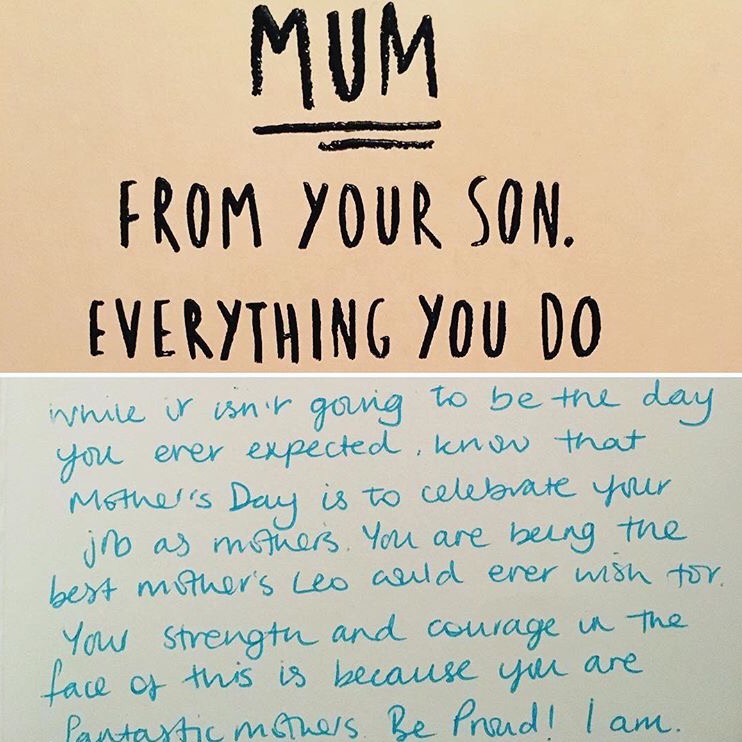 MUM
FROM YOUR SON.
EVERYTHING YOU DO
While it isn't going to be the day
you ever expected, know that
Mother's Day is to celebrate your
job as mothers. You are being the
best mother's Leo could ever wish for.
Your strength and courage in the
face of this is because you are
fantastic mothers. Be Proud! I am.